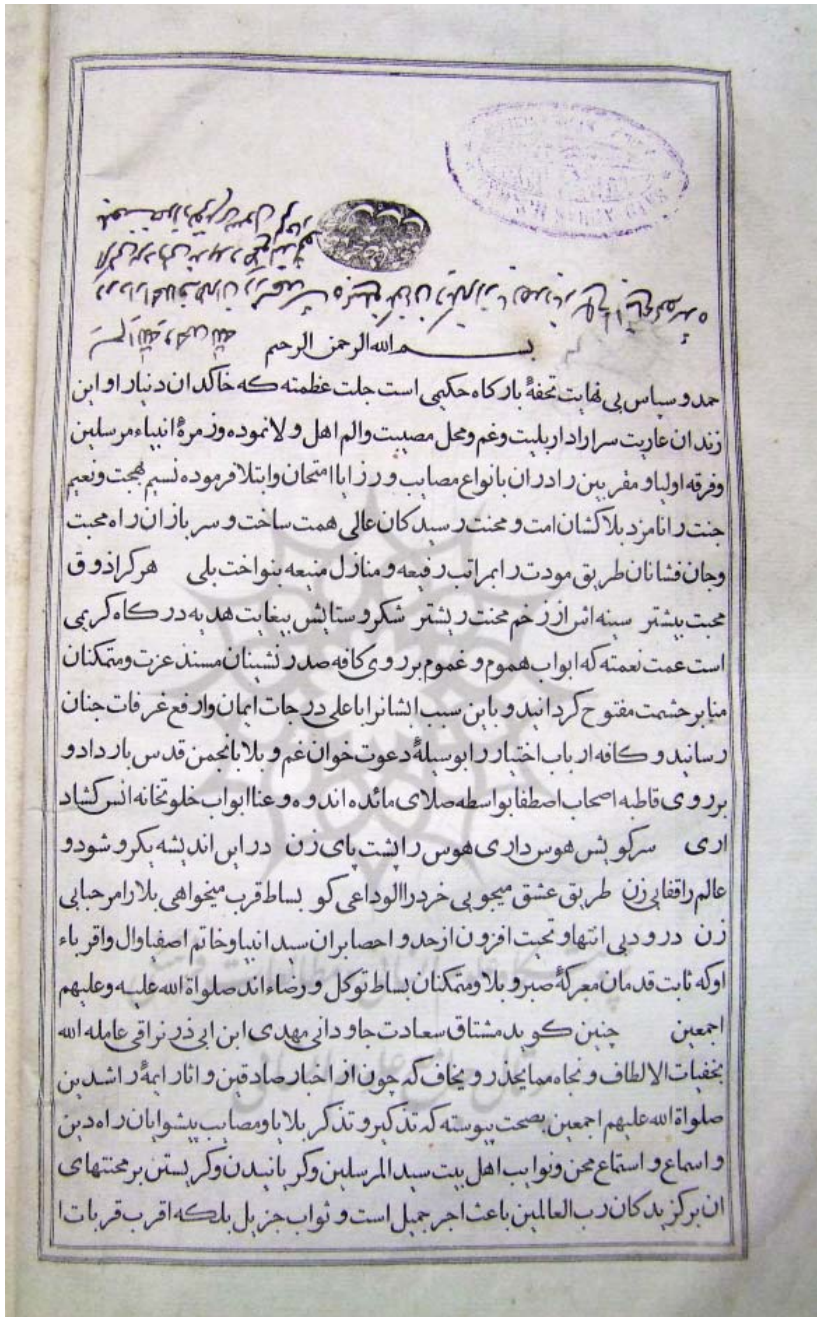 بسم الله الرحمن الرحیم
حمد و سپاس بی نهایت تحفهٔ بارکاه حکیمی است جلت عظمته که خاکدان دنیارا و این
زندان عاریت سرارا دار بلیت و غم و محل مصیبت والم اهل ولا نموده و زمرهٔ انبیاء مرسلین
وفرقه اولیا و مقربین را دران بانواع مصایب و رزایا امتحان وابتلا فرموده نسیم بهجت و نعیم
جنت را نامزد بلاکشان امت و محنت رسیدکان عالی همت ساخت و سربازان راه محبت
وجان فشانان طریق مودت را بمراتب رفیعه و منازل منیعه بنواخت بلی هرکرا ذوق
محبت بیشتر سینه اش از زخم محنت ریشتر شکر و ستایش بیغایت هدیه درکاه کریمی
است عمت نعمته که ابواب هموم و غموم بر روی کافه صدر نشینان مسند عزت و متمکنان
منابر حشمت مفتوح کردانید و باین سبب ایشانرا باعلی درجات ایمان وارفع غرفات جنان
رسانید و کافه ارباب اختیار را بوسیلهٔ دعوت خوان غم و بلا بانجمن قدس بار داد و
بر روی قاطبه اصحاب اصطفا بواسطه صلای مائده اندوه و عنا ابواب خلوتخانه انس کشاد
اری سرکویش هوس داری هوس را پشت پای زن دراین اندیشه یکرو شو دو
عالم را قفایی زن طریق عشق میجویی خرد را الوداعی کو بساط قرب میخواهی بلا را مرحبایی
زن درود بی انتها و تحیت افزون از حد و احصا بران سید انبیا و خاتم اصفیا وال واقرباء
اوکه ثابت قدمان معرکهٔ صبر و بلا و متمکنان بساط توکل و رضاء اند صلواة الله علیه و علیهم
اجمعین چنین کوید مشتاق سعادت جاودانی مهدی ابن ابی ذر نراقی عامله الله
بخفیات الالطاف و نجاه مما یحذر و یخاف که چون از اخبار صادقین و اثار ایمهٔ راشدین
صلواة الله علیهم اجمعین بصحت پیوسته که تذکیر و تذکر بلایا و مصایب پیشوایان راه دین
و اسماع و استماع محن و نوایب اهل بیت سید المرسلین وکریانیدن وکریستن بر محنتهای
ان برکزیدکان رب العالمین باعث اجر جمیل است و ثواب جزیل بلکه اقرب قربات ا